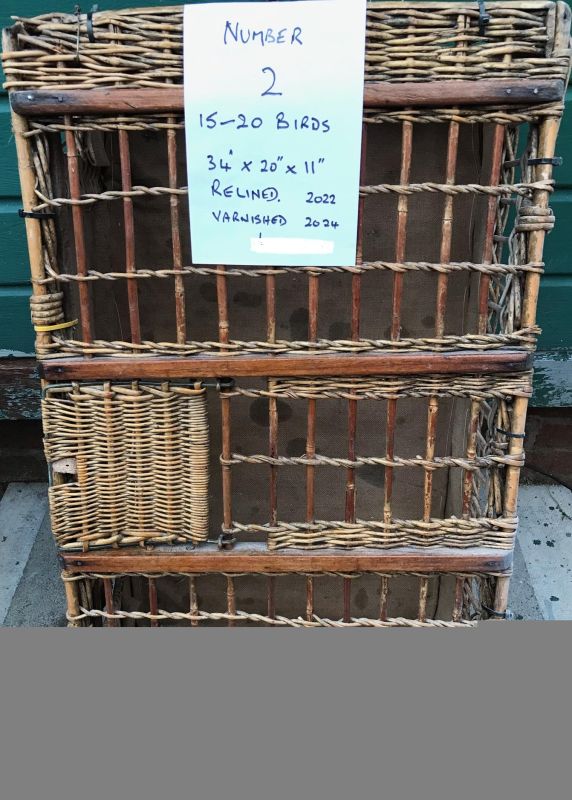 NUMBER
2
15-20 BIRDS
34" x 20" x 11"
RELINED. 2022
VARNISHED 2024